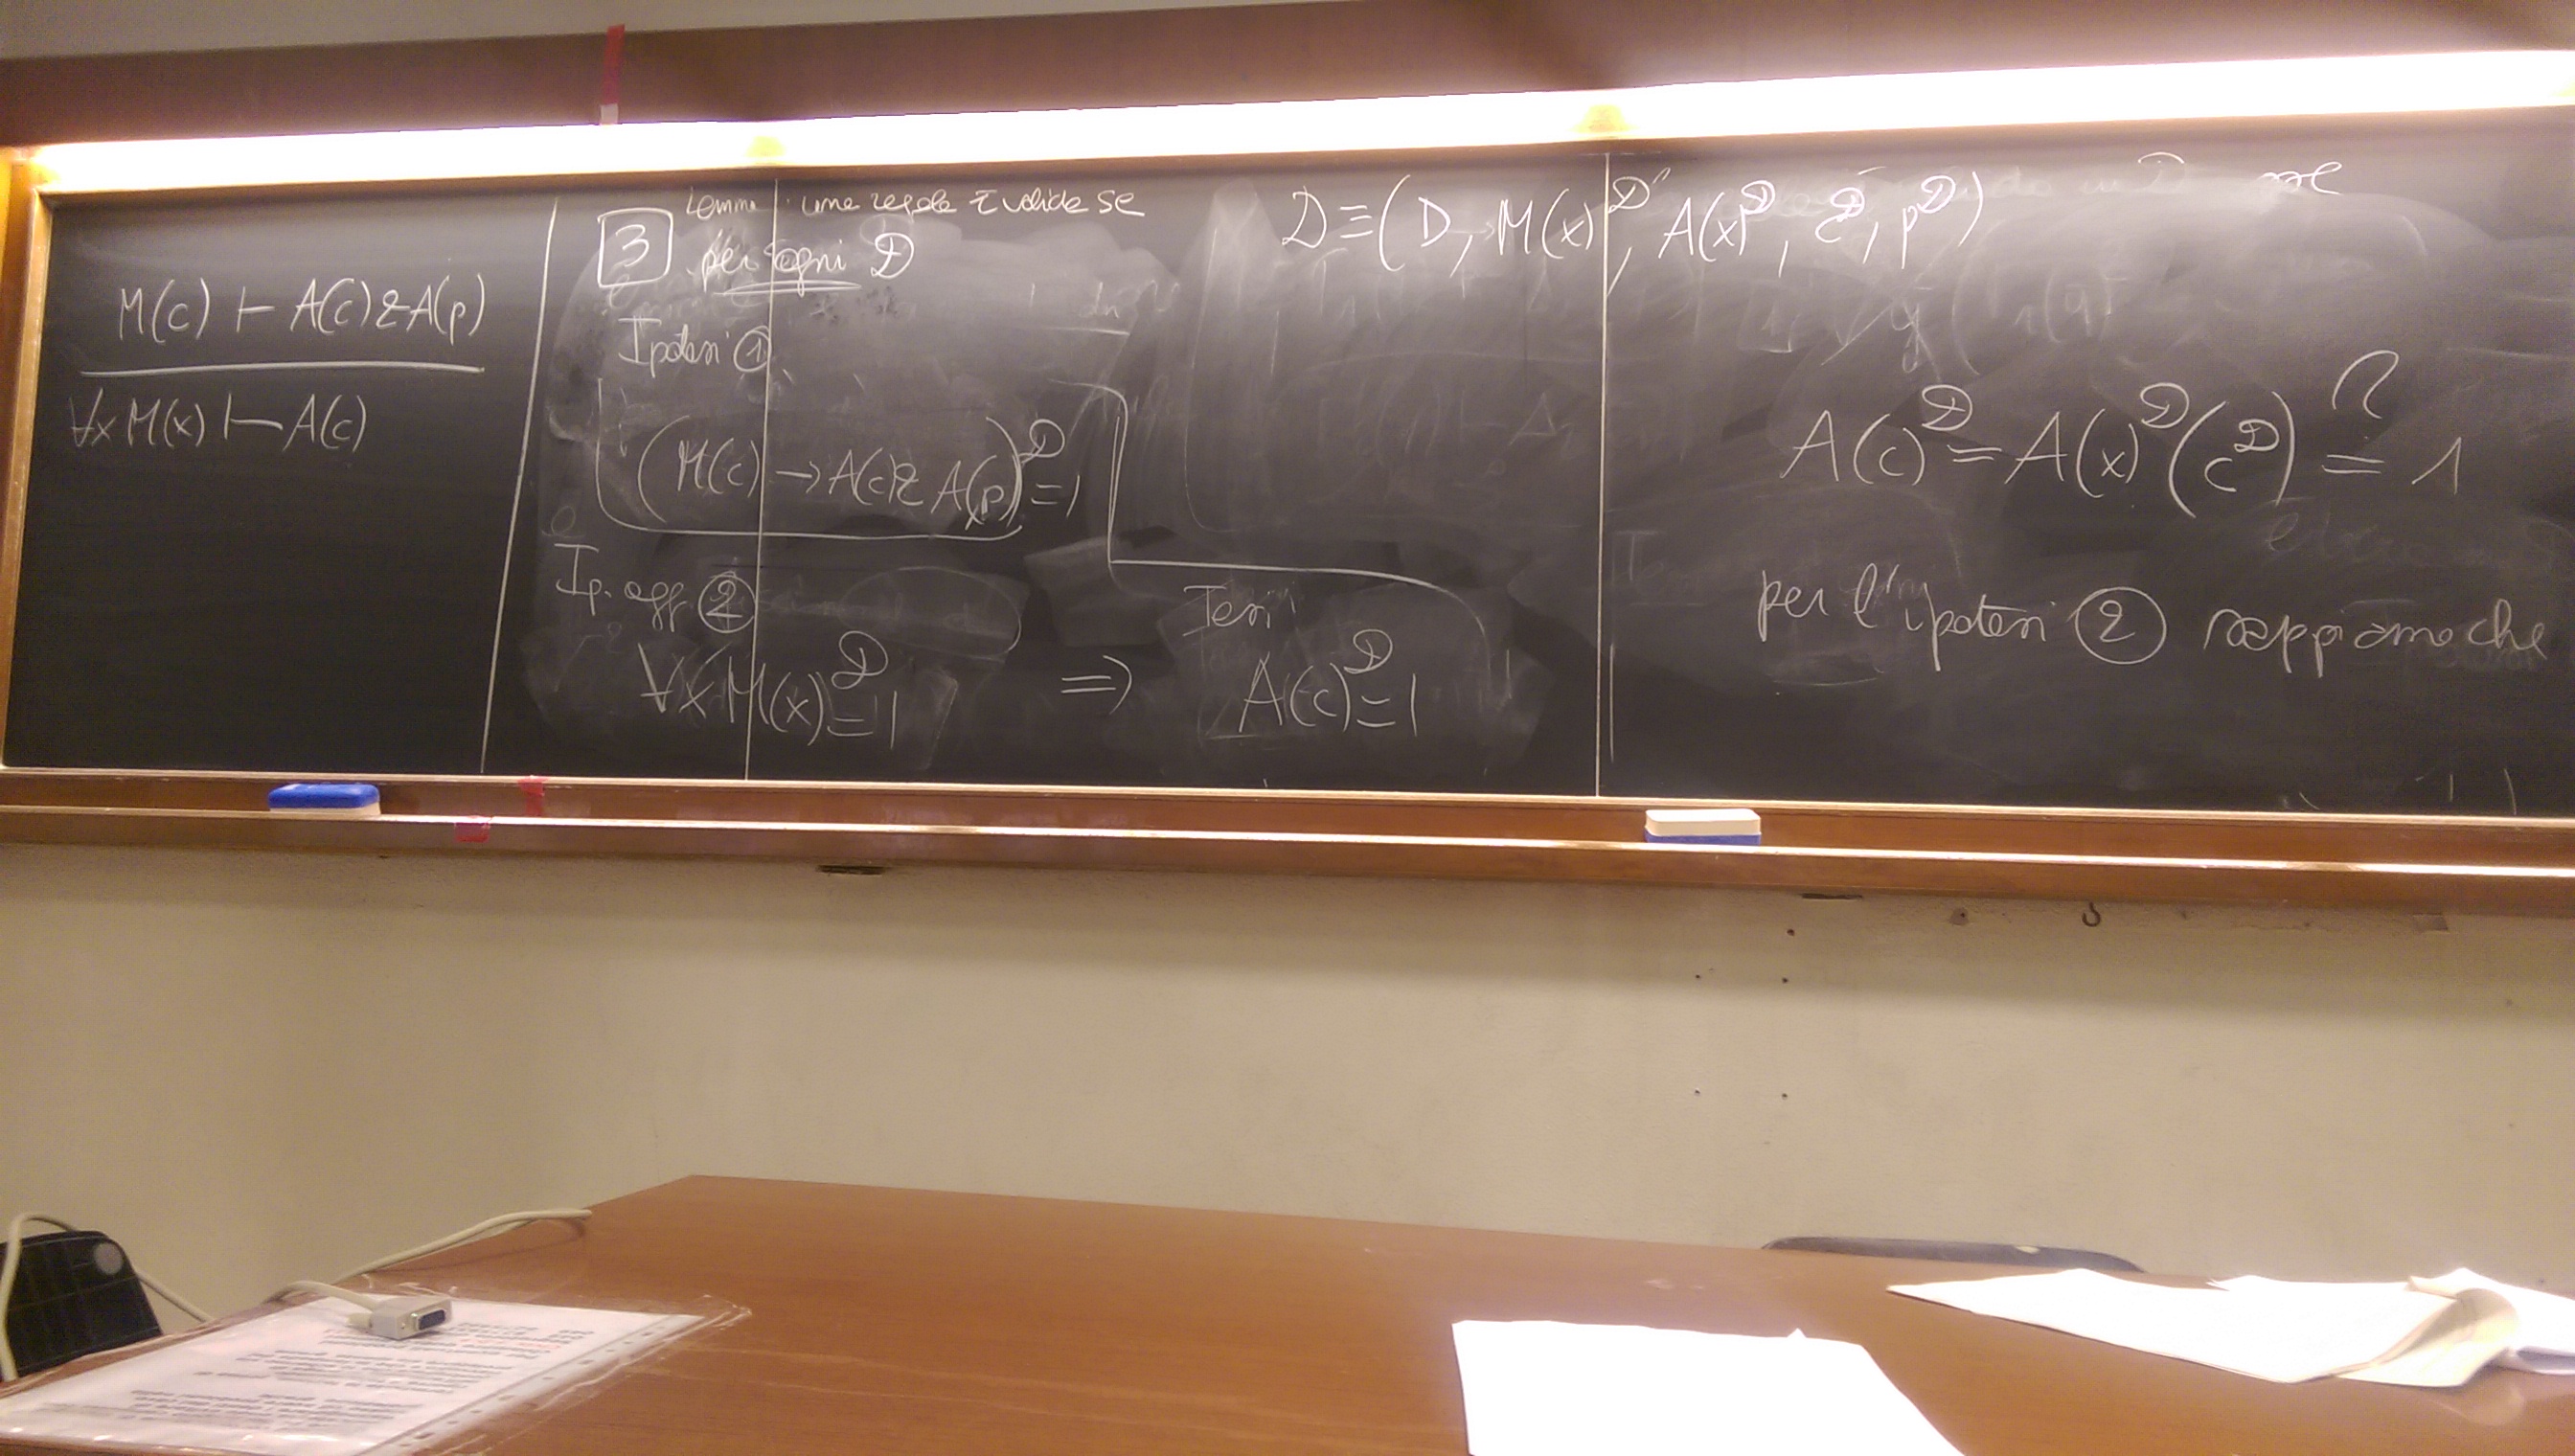 M(c) ⊢ A(c) & A(p)
∀x M(x) ⊢ A(c)
3
Lemma: una regola è valida se
per ogni D
Ipotesi ①
(M(c) → A(c) & A(p))^D = 1
Ip. agg ②
∀x M(x)^D = 1 ⇒
Tesi
A(c)^D = 1
D ≡ (D, M(x)^D, A(x)^D, c^D, p^D)
A(c)^D = A(x)^D (c^D) =? 1
per l'ipotesi ② sappiamo che